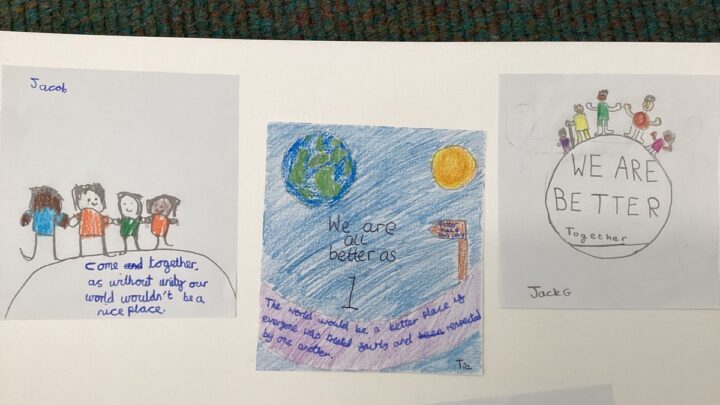 Jacob
come and together.
as without unity our
world wouldn't be a
nice place.
We are
all
better as
1
Better
The world would be a better place if
everyone was treated fairly and been respected
by one another.
Tia
WE ARE
BETTER
Together
Jack G